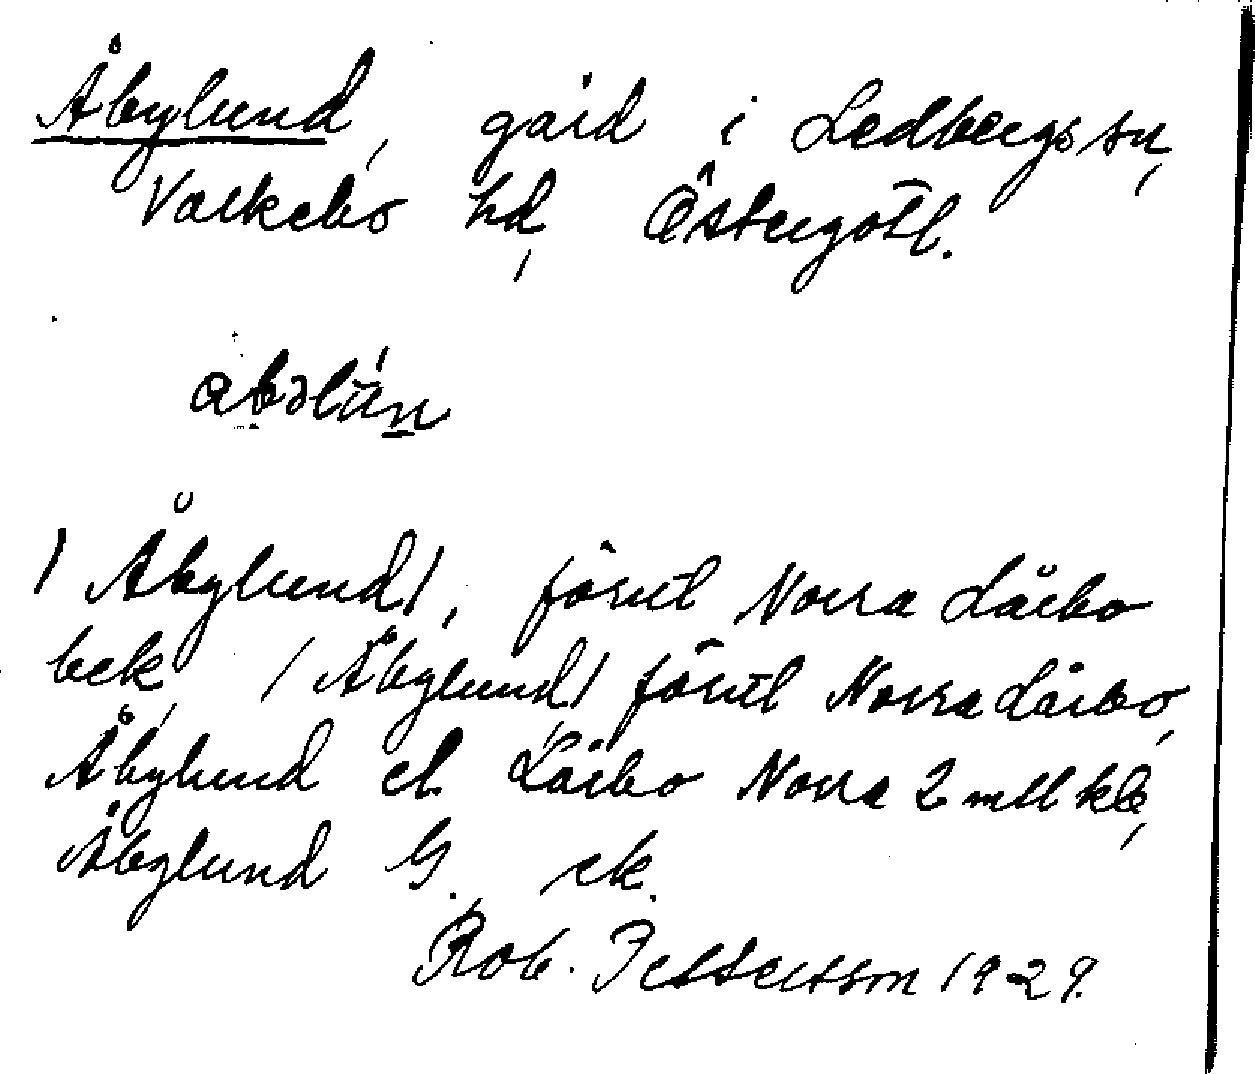 Åbylund, gård i Ledbergs sn,
Valkebo hd, Östergötl.
abəlún
/Åbylund/, förut Norra Lärbo
bek, /Åbylund/ förut Norra Lärbo,
Åbylund el. Lärbo Norra 2 mtl kb,
Åbylund G. ek.
Rob. Pettersson 1929.